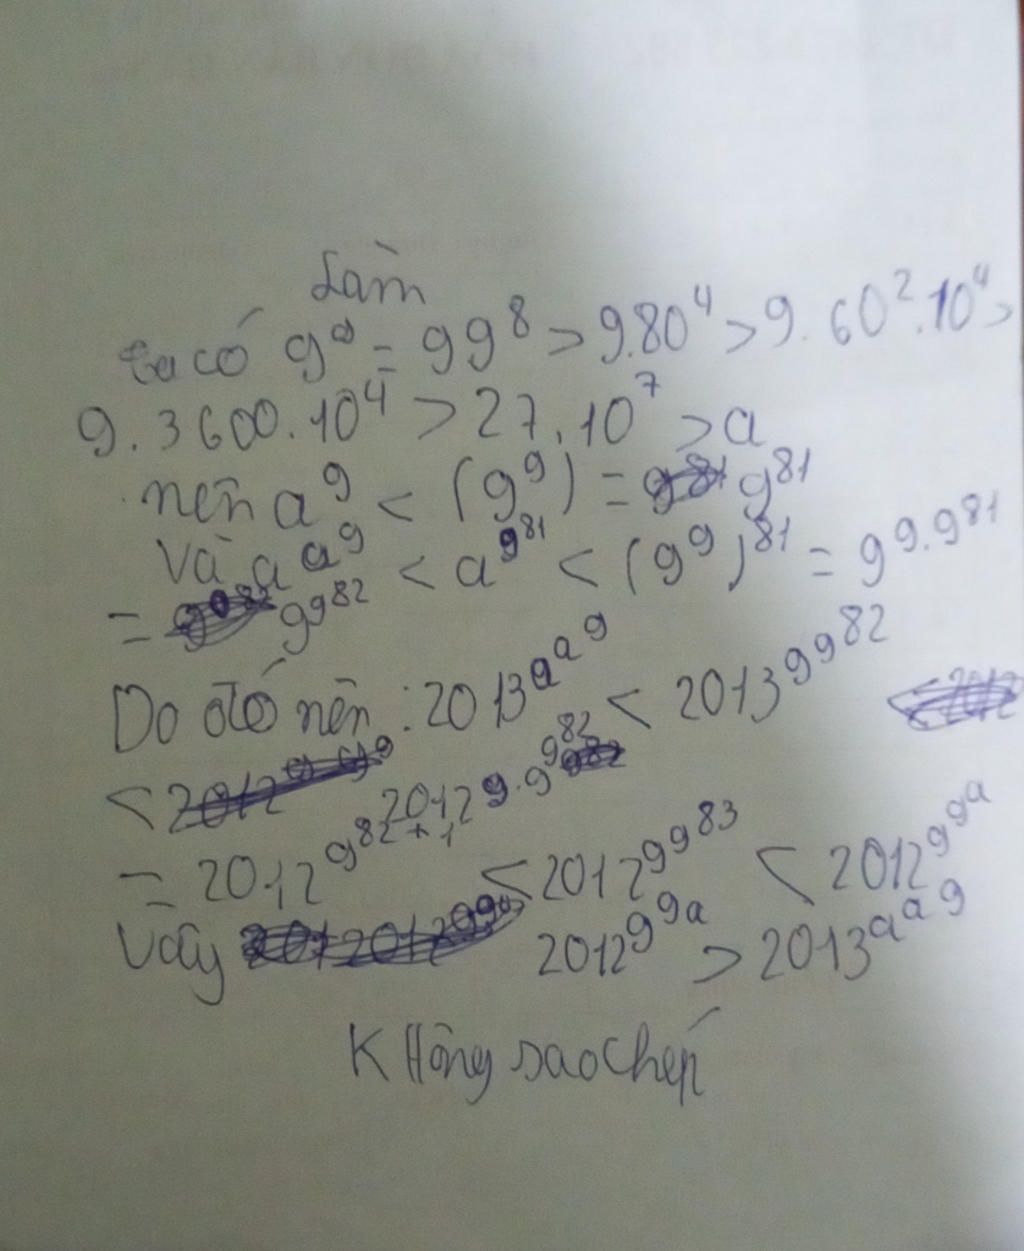 Làm
ta có 9^9 = 99^8 > 9.80^4 > 9.60^2.10^4 >
9.3600.10^4 > 27.10^7 > a
nên a^9 < (9^9) = 9^81
Và a^a^9 < a^9^81 < (9^9)^81 = 9^9.9^81
= 9^9^82
Do đó nên: 2013^a^a^9 < 2013^9^9^82
< 2012^9.9^9^82
= 2012^9^82+1 < 2012^9^9^83 < 2012^9^9^a
Vậy 2012^9^9^a > 2013^a^a^9
Không sao chép